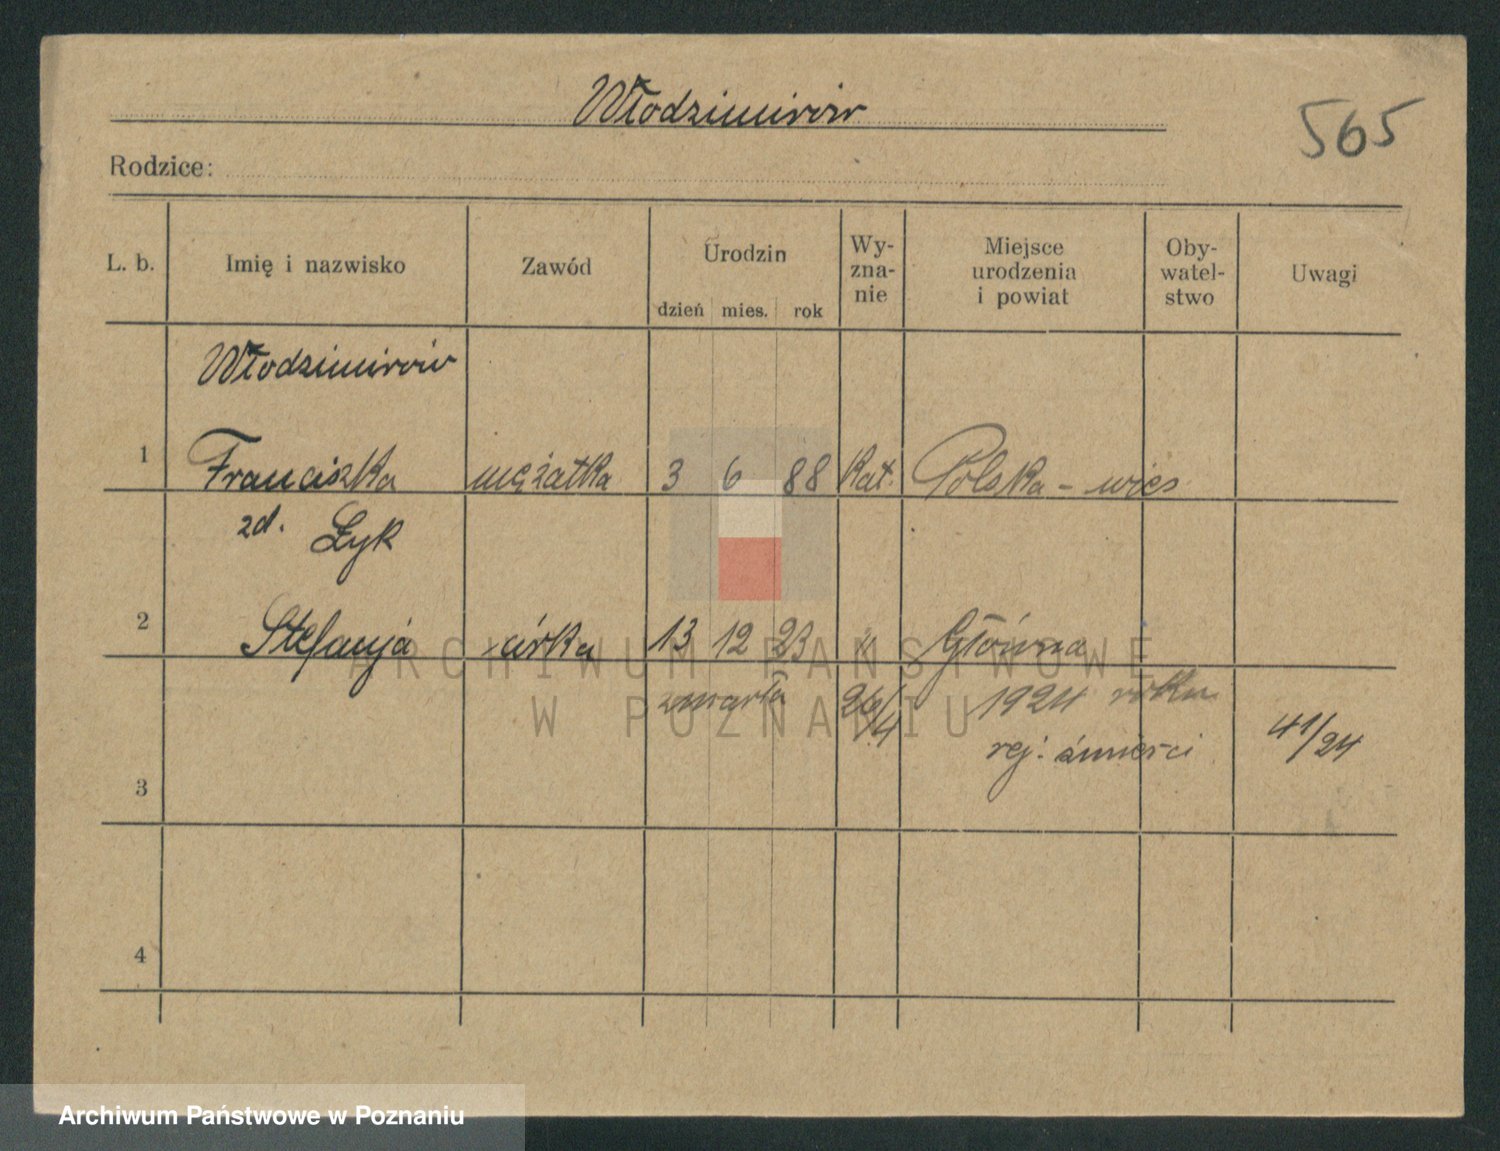 Włodzimirów
565
Rodzice:
L. b. Imię i nazwisko Zawód Urodzin dzień mies. rok Wy-zna-nie Miejsce urodzenia i powiat Oby-watel-stwo Uwagi
Włodzimirów
1 Franciszka mężatka 3 6 88 kat. Polska-wies
zd. Łyk
2 Stefanja córka 13 12 23 " Główna
zmarła 26/4 1924 roku
rej. śmierci 41/24
3
4
ARCHIWUM PAŃSTWOWE
W POZNANIU
Archiwum Państwowe w Poznaniu